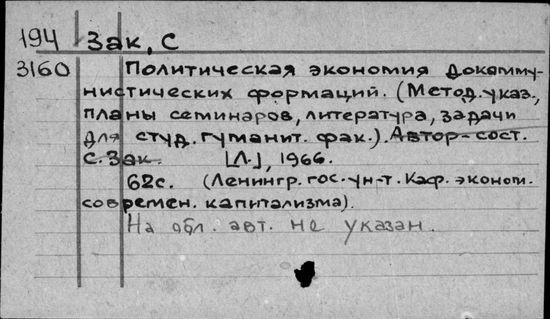 194 Зак, С
3160 Политическая экономия докамму-
нистических формаций. (Метод.указ.,
планы семинаров, литература, задачи
для студ. гуманит. фак.). Автор-сост.
С. Зак. [Л.], 1966.
62с. (Ленингр. гос. ун-т. Каф. эконом.
современ. капитализма).
На обл. авт. не указан.